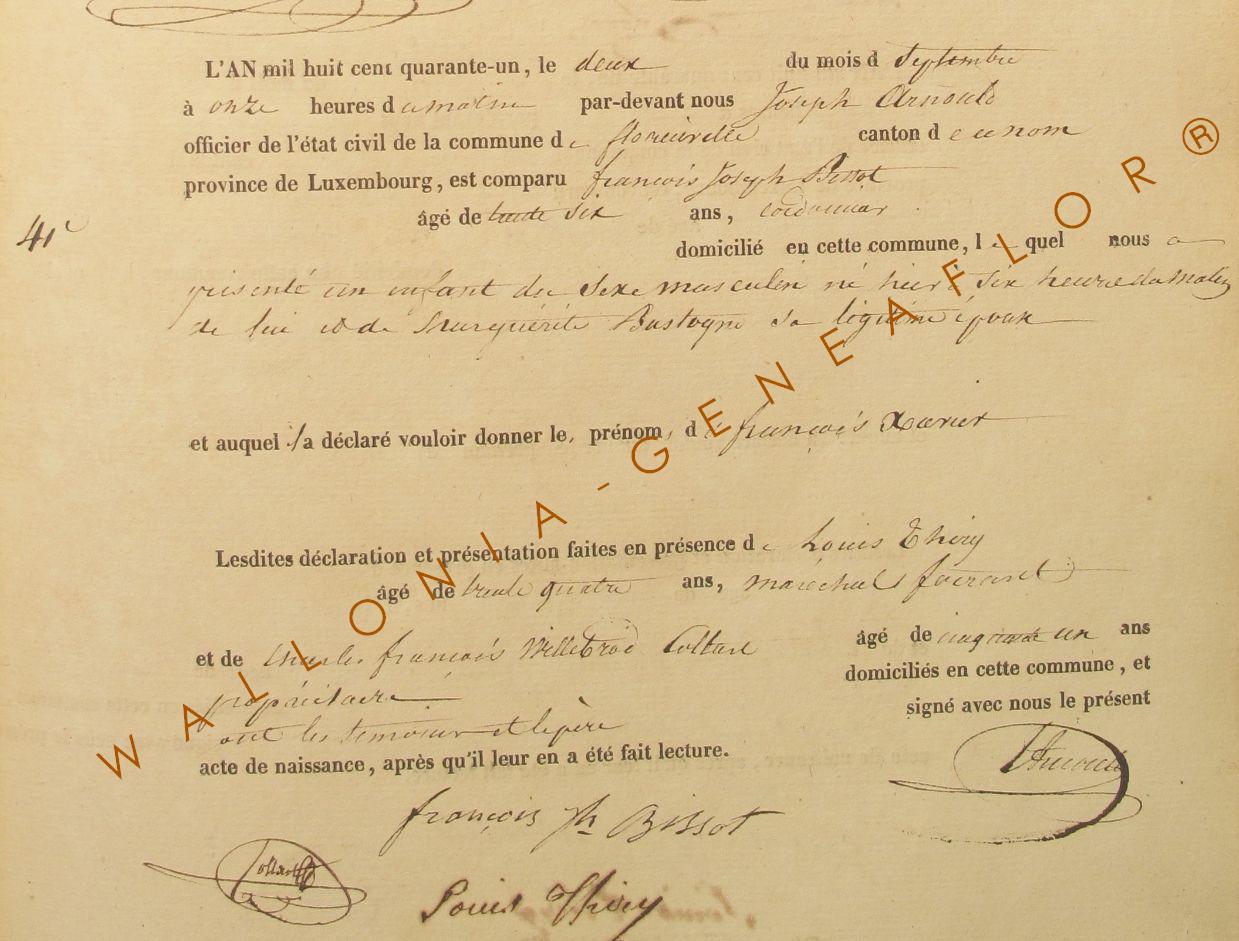 L'AN mil huit cent quarante-un, le deux du mois d Septembre
à onze heures du matin par-devant nous Joseph Arnould
officier de l'état civil de la commune de florenville canton de ce nom
province de Luxembourg, est comparu françois Joseph Bissot
âgé de trente six ans, cordonnier
41e
domicilié en cette commune, le quel nous a
présenté un enfant du sexe masculin né hier à six heure du matin
de lui et de Marguérite Bastogne sa légitime épouse
et auquel il a déclaré vouloir donner les prénoms de françois Xavier
Lesdites déclaration et présentation faites en présence de Louis Thiry
âgé de trente quatre ans, maréchal ferrant
et de Charles françois Willebrod Collard âgé de cinquante un ans
propriétaire domiciliés en cette commune, et
ont les temoins et le père signé avec nous le présent
acte de naissance, après qu'il leur en a été fait lecture.
JArnould
françois Jh Bissot
Collard
Louis Thiry
WALLONIA-GENEAFLOR ®